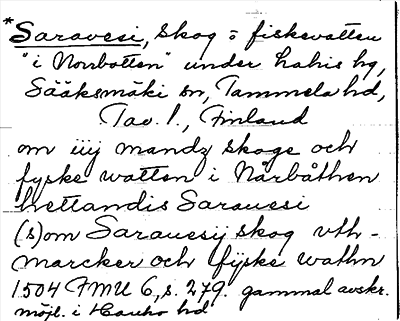 *Saravesi, skog o fiskevatten
"i Norrbotten" under Lahis by,
Sääksmäki sn, Tammela hd,
Tav. l., Finland
om iiij mandz skoge och
fyske watten i Nårbåthen
hettandis Sarauesi
(s)om Sarauesij skog vth-
marcker och fijske wathn
1504 FMU 6, s. 279. gammal avskr.
möjl. i Hauho hd